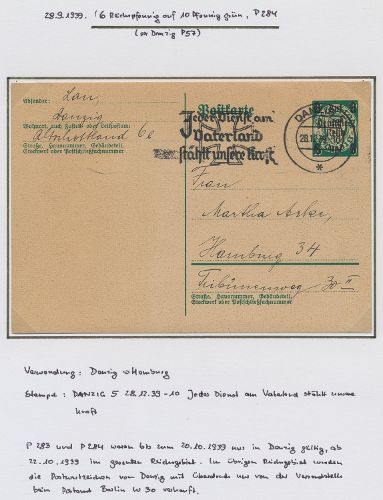 28.9.1939. 6 Reichspfennig auf 10 Pfennig grün, P 284
(ex Danzig P57)
Absender:
Danzig
Wohnort, auch Zustell- oder Leitpostamt:
Straße, Hausnummer, Gebäudeteil,
Stockwerk oder Postschließfachnummer
Postkarte
Jeder Dienst am
Vaterland
stählt unsere Kraft
DANZIG
Frau
Martha
Hamburg 34
30 II
Straße, Hausnummer, Gebäudeteil,
Stockwerk oder Postschließfachnummer
Verwendung: Danzig Hamburg
Stempel: DANZIG 5 28.12.39-10 Jedes Dienst am Vaterland stählt unsere
Kraft
P 283 und P 284 waren bis zum 20.10.1939 nur in Danzig gültig, ab
22.10.1939 im gesamten Reichsgebiet. Im übrigen Reichsgebiet wurden
die Postwertzeichen von Danzig mit Überdruck nur von der Versandstelle
beim Postamt Berlin W 30 verkauft.